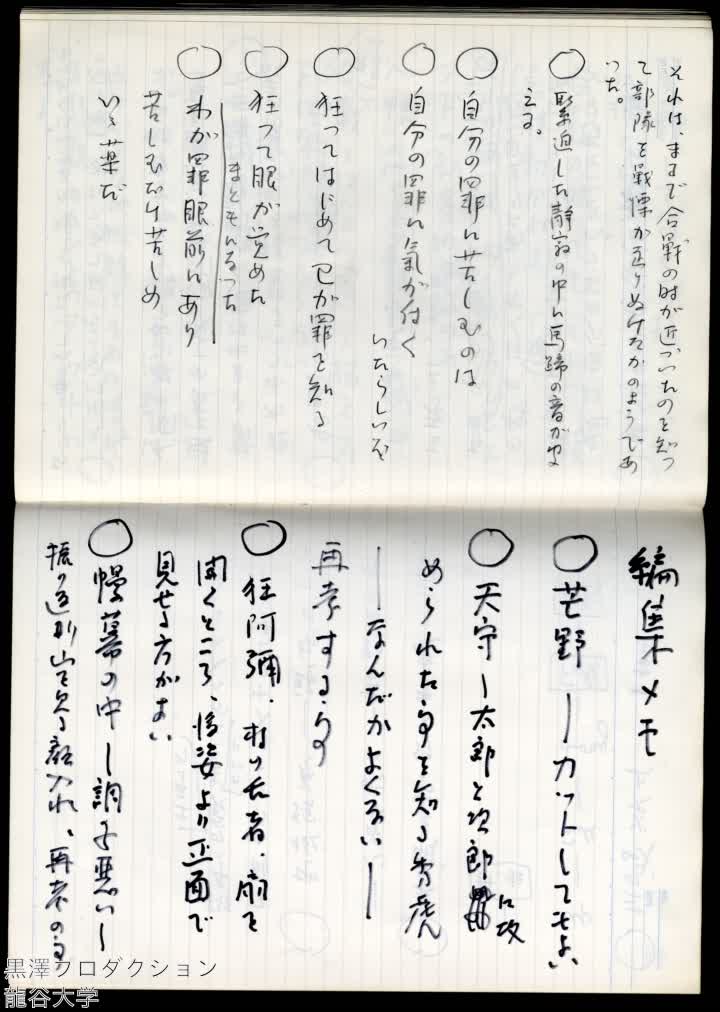 それは、まるで合戦の時が近づいたのを知つ
て部隊を戦慄が走りぬけたかのようであ
つた。
○ 緊迫した静寂の中に馬蹄の音が
える。
○ 自分の罪に苦しむのは
○ 自分の罪に氣が付く
いたらしいぞ
○ 狂つてはじめて己が罪を知る
○ 狂つて眼が覚めた
まともになつた
○ わが罪眼前にあり
苦しむだけ苦しめ
いゝ薬だ
編集メモ
○ 芒野 ― カットしてもよい
○ 天守 ― 太郎と次郎に攻
められた事を知る秀虎
― なんだかよくない ―
再考する事
○ 狂阿彌、扇を
開くところ 後姿より正面で
見せる方がよい
○ 幔幕の中 ― 調子悪い ―
入れ、再考の事
黒澤プロダクション
龍谷大学